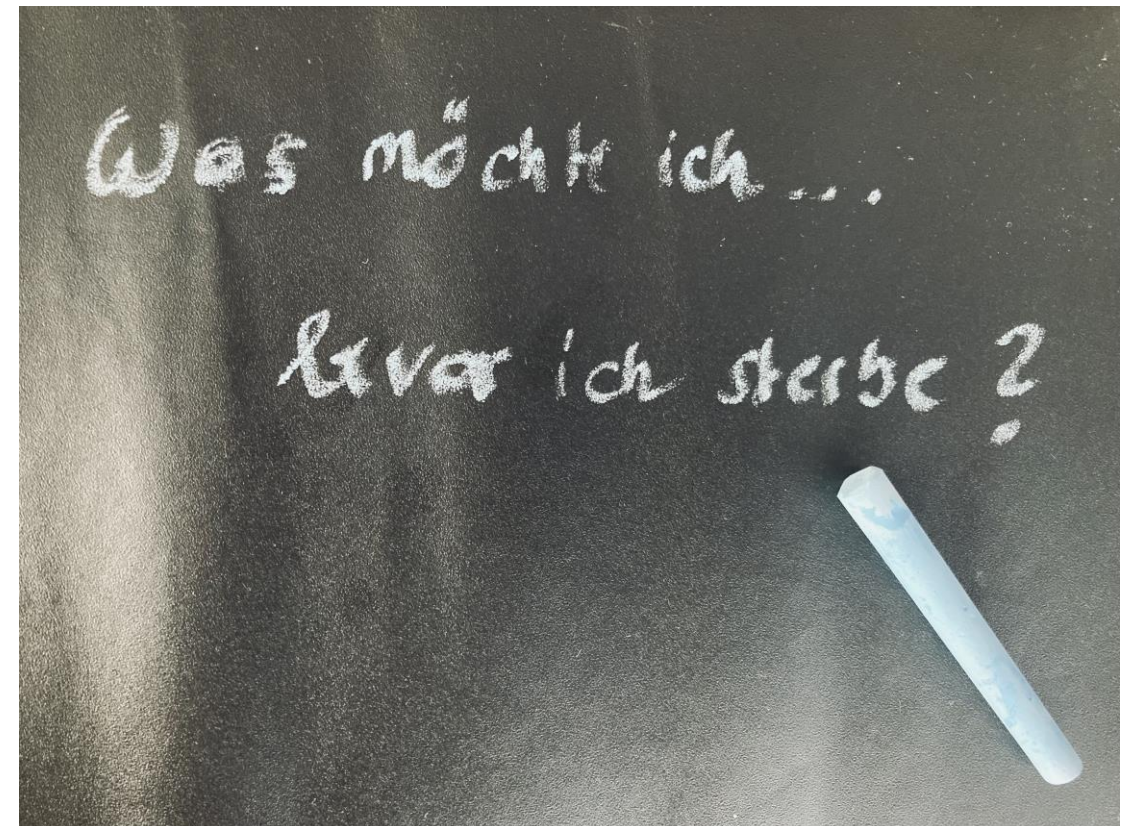 Was möchte ich...
bevor ich sterbe?